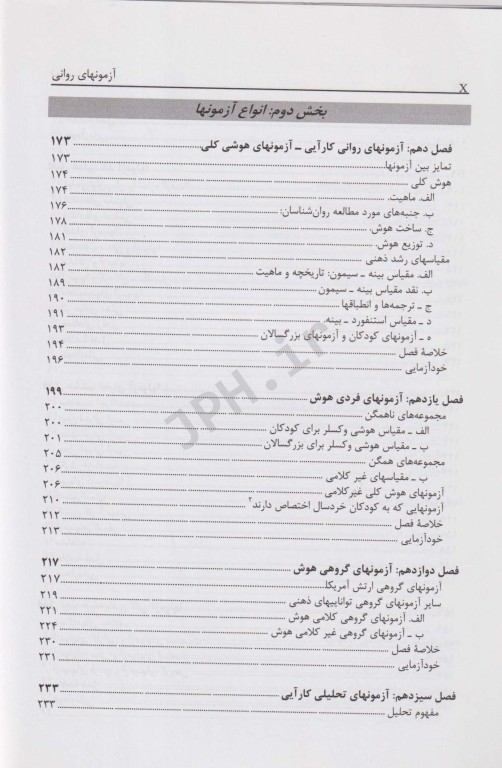 آزمونهای روانی
X
بخش دوم: انواع آزمونها
فصل دهم: آزمونهای روانی کارآیی ـ آزمونهای هوشی کلی ۱۷۳
تمایز بین آزمونها ۱۷۳
هوش کلی ۱۷۴
الف. ماهیت. ۱۷۴
ب. جنبه‌های مورد مطالعه روان‌شناسان: ۱۷۶
ج. ساخت هوش. ۱۷۸
د. توزیع هوش. ۱۸۱
مقیاسهای رشد ذهنی ۱۸۲
الف. مقیاس بینه ـ سیمون: تاریخچه و ماهیت ۱۸۲
ب. نقد مقیاس بینه ـ سیمون ۱۸۹
ج ـ ترجمه‌ها و انطباقها ۱۹۰
د ـ مقیاس استنفورد ـ بینه. ۱۹۱
ه ـ آزمونهای کودکان و آزمونهای بزرگسالان ۱۹۳
خلاصهٔ فصل ۱۹۴
خودآزمایی ۱۹۶
فصل یازدهم: آزمونهای فردی هوش ۱۹۹
مجموعه‌های ناهمگن ۲۰۰
الف ـ مقیاس هوشی وکسلر برای کودکان ۲۰۰
ب ـ مقیاس هوشی وکسلر برای بزرگسالان ۲۰۱
مجموعه‌های همگن ۲۰۵
ب ـ مقیاسهای غیر کلامی ۲۰۶
آزمونهای هوش کلی غیرکلامی ۲۰۶
آزمونهایی که به کودکان خردسال اختصاص دارند۲ ۲۱۰
خلاصهٔ فصل ۲۱۲
خودآزمایی ۲۱۳
فصل دوازدهم: آزمونهای گروهی هوش ۲۱۷
آزمونهای گروهی ارتش آمریکا ۲۱۷
سایر آزمونهای گروهی تواناییهای ذهنی ۲۱۹
الف. آزمونهای گروهی کلامی هوش ۲۲۱
ب ـ آزمونهای گروهی غیر کلامی هوش ۲۲۴
خلاصهٔ فصل ۲۳۰
خودآزمایی ۲۳۱
فصل سیزدهم: آزمونهای تحلیلی کارآیی ۲۳۳
مفهوم تحلیل ۲۳۳
JPH.ir